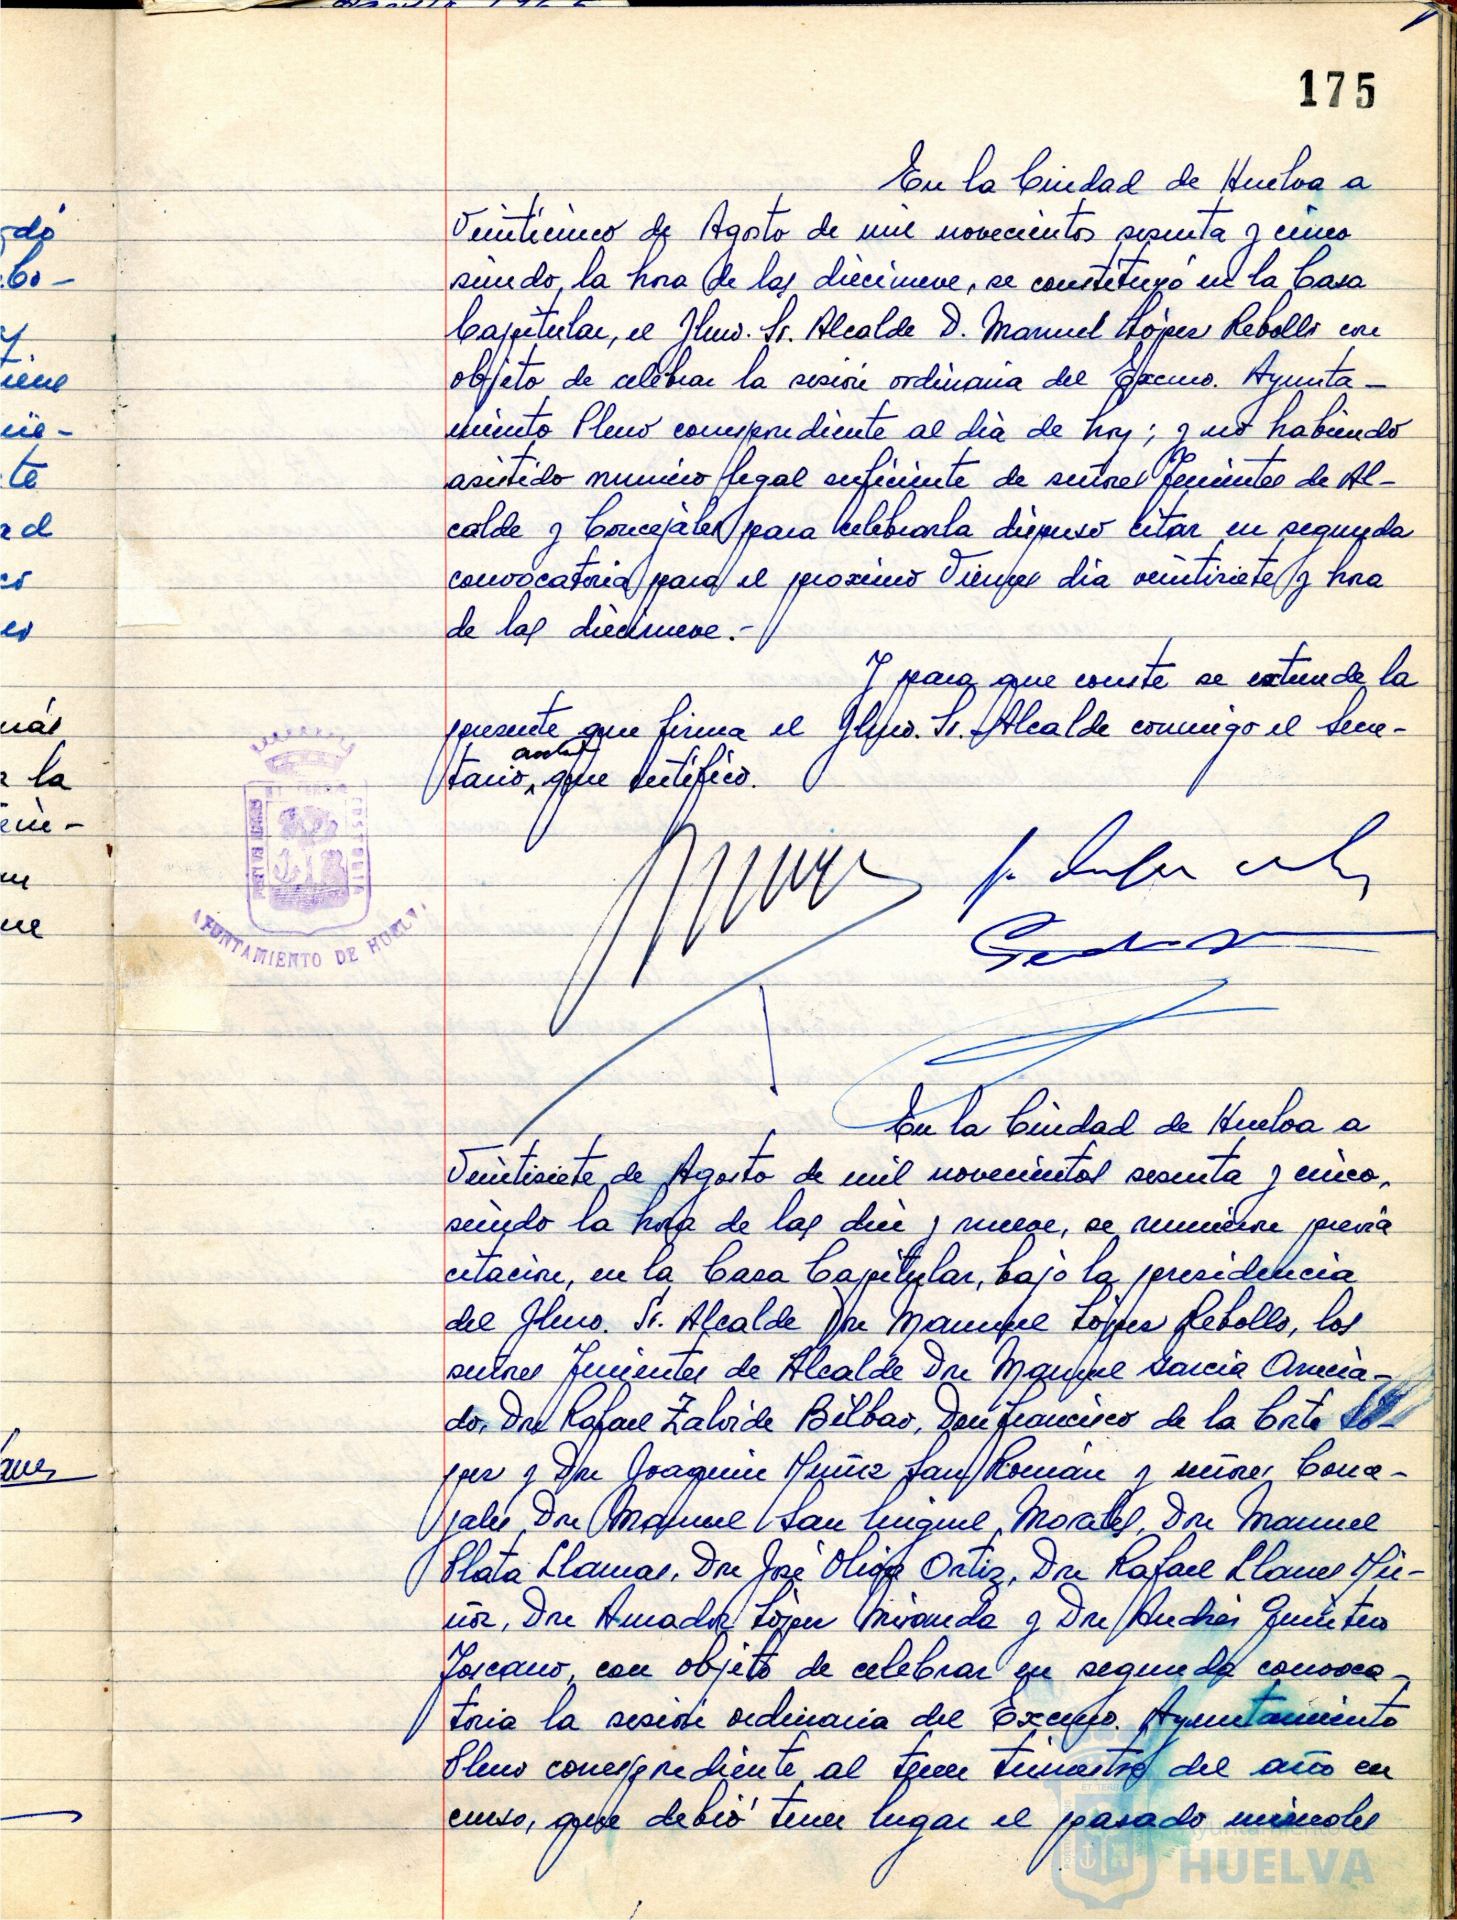 175
En la Ciudad de Huelva a
Veinticinco de Agosto de mil novecientos sesenta y cinco
siendo, la hora de las diecinueve, se constituyó en la Casa
Capitular, el Ilmo. Sr. Alcalde D. Manuel López Rebollo con
objeto de celebrar la sesión ordinaria del Excmo. Ayunta-
miento Pleno correspondiente al día de hoy; y no habiendo
asistido numero legal suficiente de señores Tenientes de Al-
calde y Concejales para celebrarla dispuso citar en segunda
convocatoria para el proximo Viernes dia veintisiete y hora
de las diecinueve.-
Y para que conste se extiende la
presente que firma el Ilmo. Sr. Alcalde conmigo el Secre-
tario, que certifico.
AYUNTAMIENTO DE HUELVA
En la Ciudad de Huelva a
Veintisiete de Agosto de mil novecientos sesenta y cinco,
siendo la hora de las diez y nueve, se reunieron previa
citación, en la Casa Capitular, bajo la presidencia
del Ilmo. Sr. Alcalde Don Manuel López Rebollo, los
señores Tenientes de Alcalde Don Manuel Garcia
do, Don Rafael Zalvide Bilbao, Don Francisco de la Corte Ló-
pez y Don Joaquin Muñiz San Román y señores Conce-
jales Don Manuel San Miguel Morales, Don Manuel
Plata Llamas, Don José Oliva Ortiz, Don Rafael Llanes Mu-
ñoz, Don Amador López Miranda y Don Andrés Quintero
Toscano, con objeto de celebrar en segunda convoca-
toria la sesión ordinaria del Excmo. Ayuntamiento
Pleno correspondiente al tercer trimestre del año en
curso, que debió tener lugar el pasado miercoles
Ayuntamiento
HUELVA